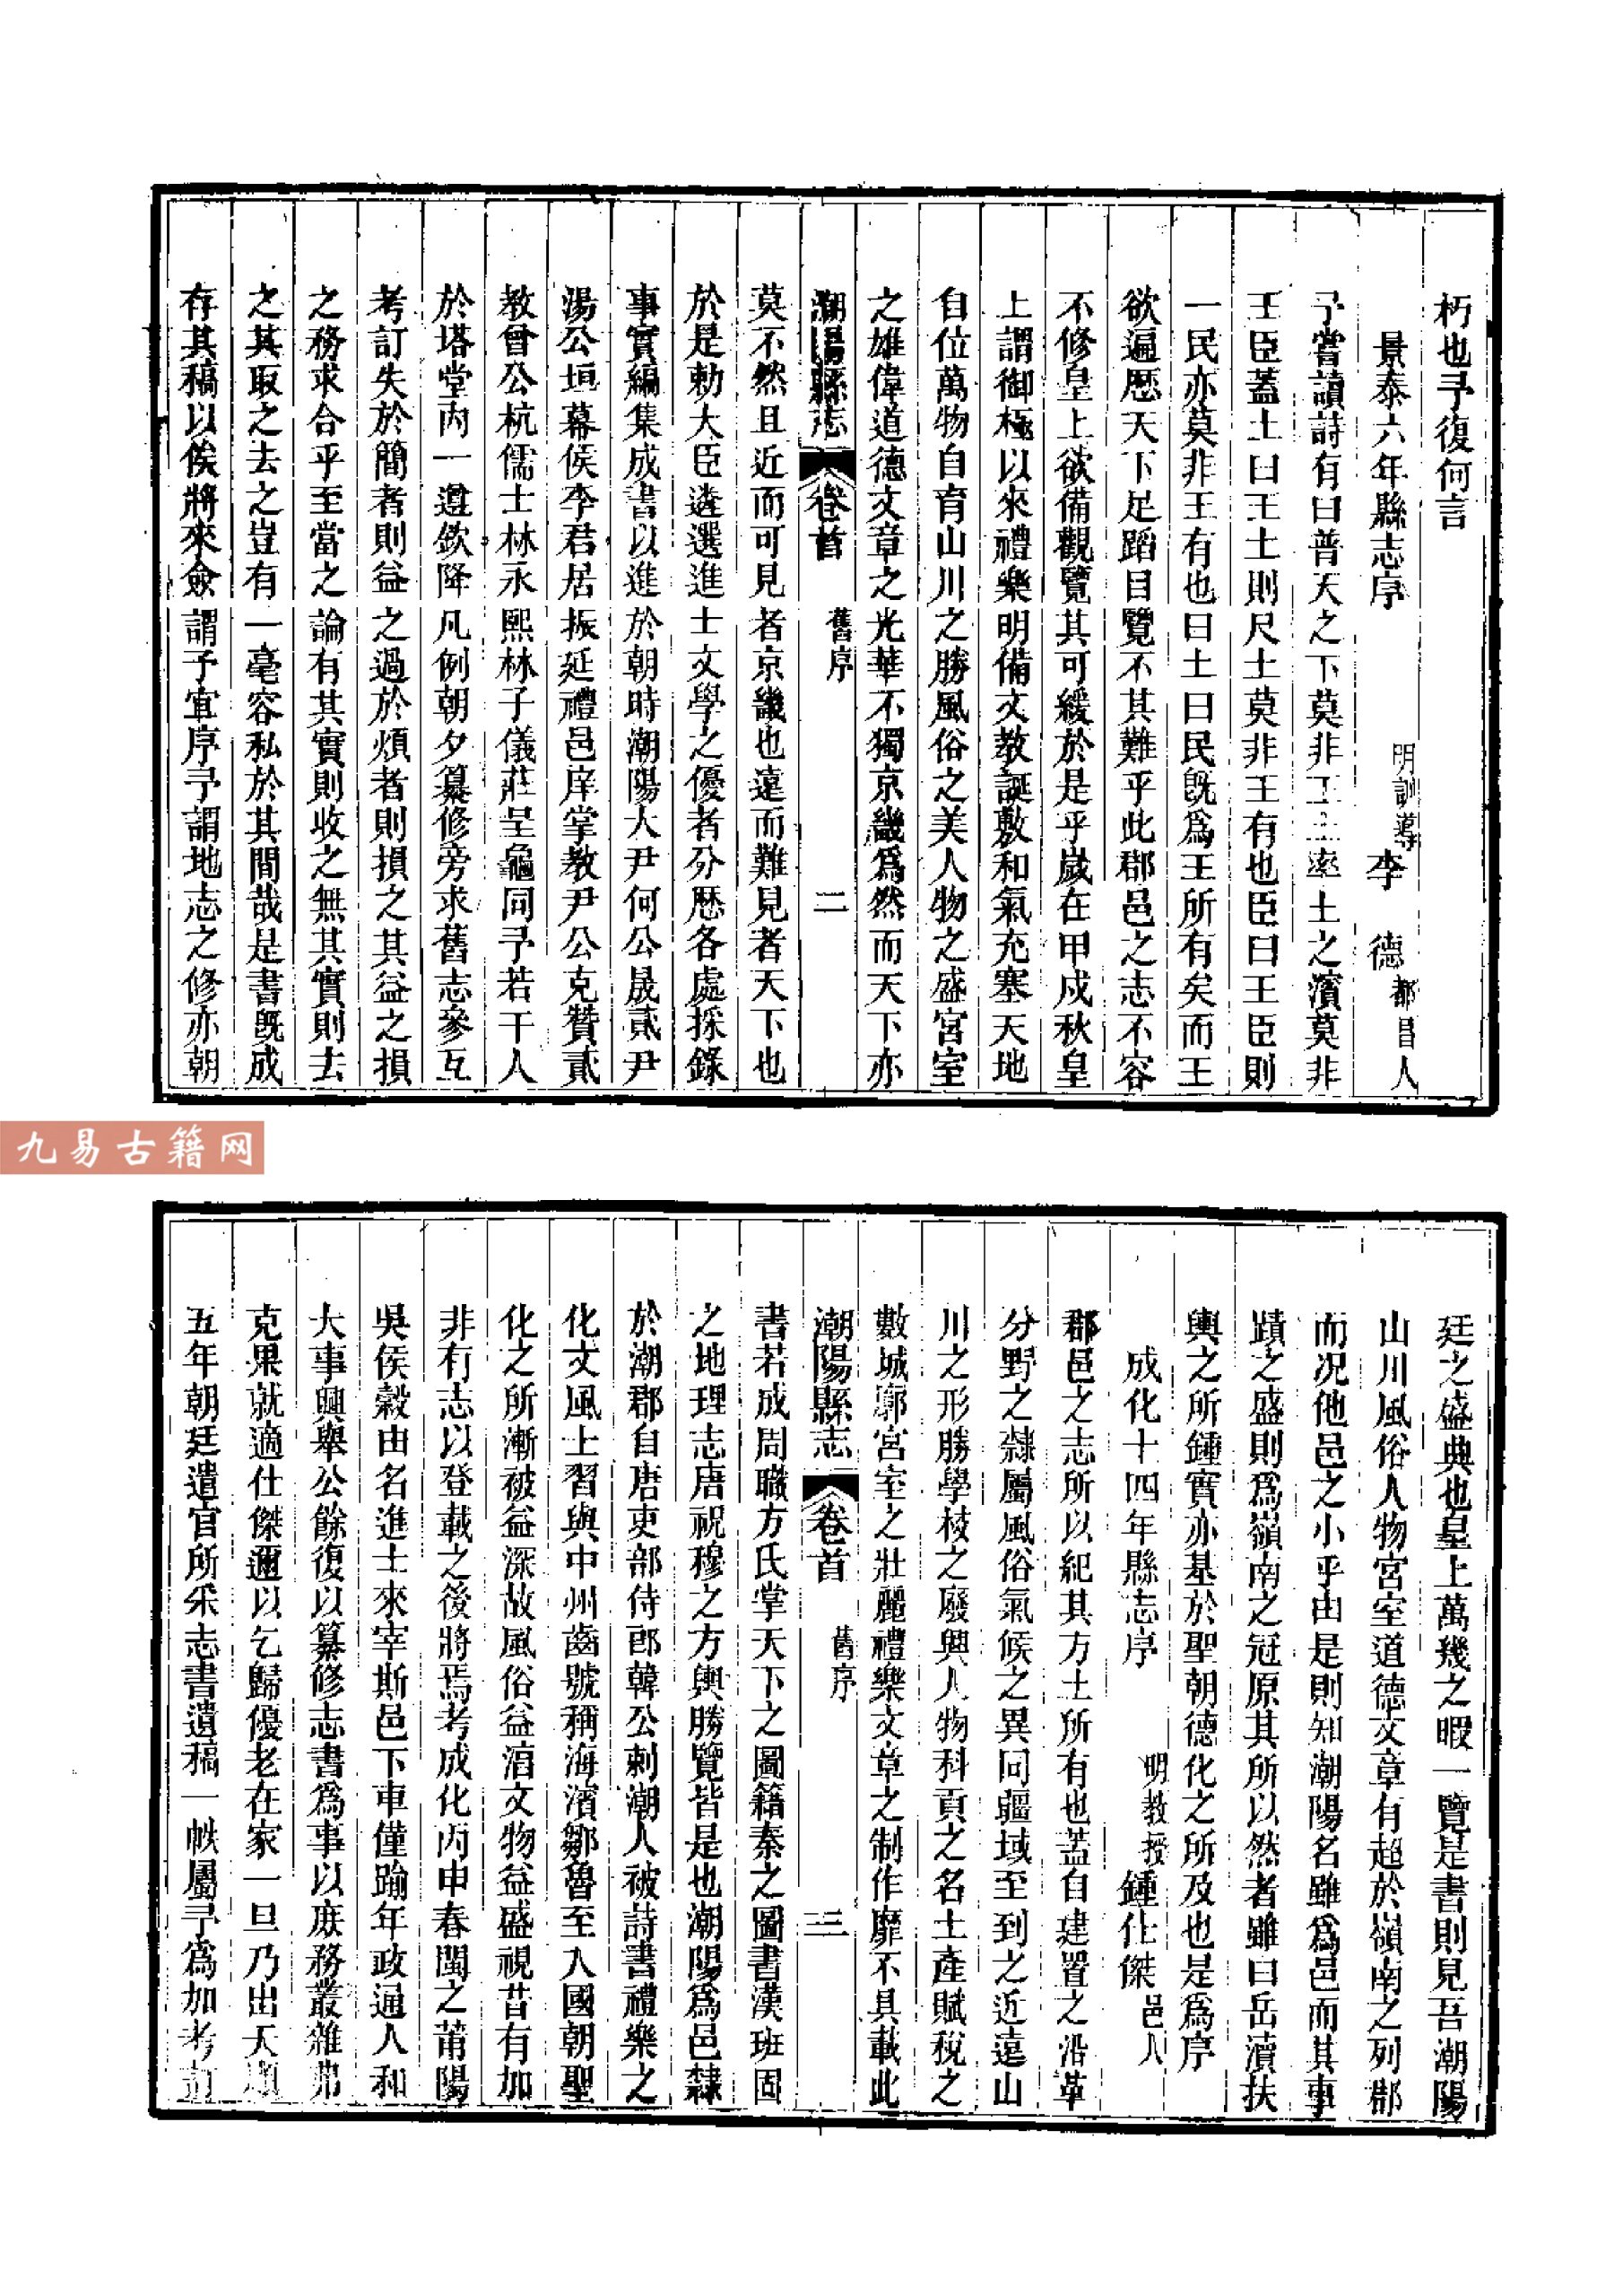 朽也予復何言
景泰六年縣志序 明訓導李德都昌人
予嘗讀詩有曰普天之下莫非王土率土之濱莫非
王臣蓋土曰王土則尺土莫非王有也臣曰王臣則
一民亦莫非王有也曰土曰民旣爲王所有矣而王
欲遍歷天下足蹈目覽不其難乎此郡邑之志不容
不修皇上欲備觀覽其可緩於是乎歲在甲戍秋皇
上謂御極以來禮樂明備文教誕敷和氣充塞天地
自位萬物自育山川之勝風俗之美人物之盛宮室
之雄偉道德文章之光華不獨京畿爲然而天下亦
潮陽縣志 卷首 舊序 二
莫不然且近而可見者京畿也遠而難見者天下也
於是勅大臣遴選進士文學之優者分歷各處採錄
事實編集成書以進於朝時潮陽大尹何公晟貳尹
湯公垣幕侯李君居振延禮邑庠掌教尹公克贊貳
教曾公杭儒士林永熙林子儀莊呈龜同予若干人
於塔堂內一遵欽降凡例朝夕纂修旁求舊志參互
考訂失於簡者則益之過於煩者則損之其益之損
之務求合乎至當之論有其實則收之無其實則去
之其取之去之豈有一毫容私於其間哉是書旣成
存其稿以俟將來僉謂予宜序予謂地志之修亦朝
廷之盛典也皇上萬幾之暇一覽是書則見吾潮陽
山川風俗人物宮室道德文章有超於嶺南之列郡
而况他邑之小乎由是則知潮陽名雖爲邑而其事
蹟之盛則爲嶺南之冠原其所以然者雖曰岳瀆扶
輿之所鍾實亦基於聖朝德化之所及也是爲序
成化十四年縣志序 明教授鍾仕傑邑人
郡邑之志所以紀其方土所有也蓋自建置之沿革
分野之隸屬風俗氣候之異同疆域至到之近遠山
川之形勝學校之廢興人物科貢之名土產賦稅之
數城廓宮室之壯麗禮樂文章之制作靡不具載此
潮陽縣志 卷首 舊序 三
書若成周職方氏掌天下之圖籍秦之圖書漢班固
之地理志唐祝穆之方輿勝覽皆是也潮陽爲邑隸
於潮郡自唐吏部侍郎韓公刺潮人被詩書禮樂之
化文風上習與中州齒號稱海濱鄒魯至入國朝聖
化之所漸被益深故風俗益淳文物益盛視昔有加
非有志以登載之後將焉考成化丙申春閩之莆陽
吳侯穀由名進士來宰斯邑下車僅踰年政通人和
大事興舉公餘復以纂修志書爲事以庶務叢雜弗
克果就適仕傑邇以乞歸優老在家一旦乃出天順
五年朝廷遣官所采志書遺稿一帙屬予爲加考訂
九易古籍网